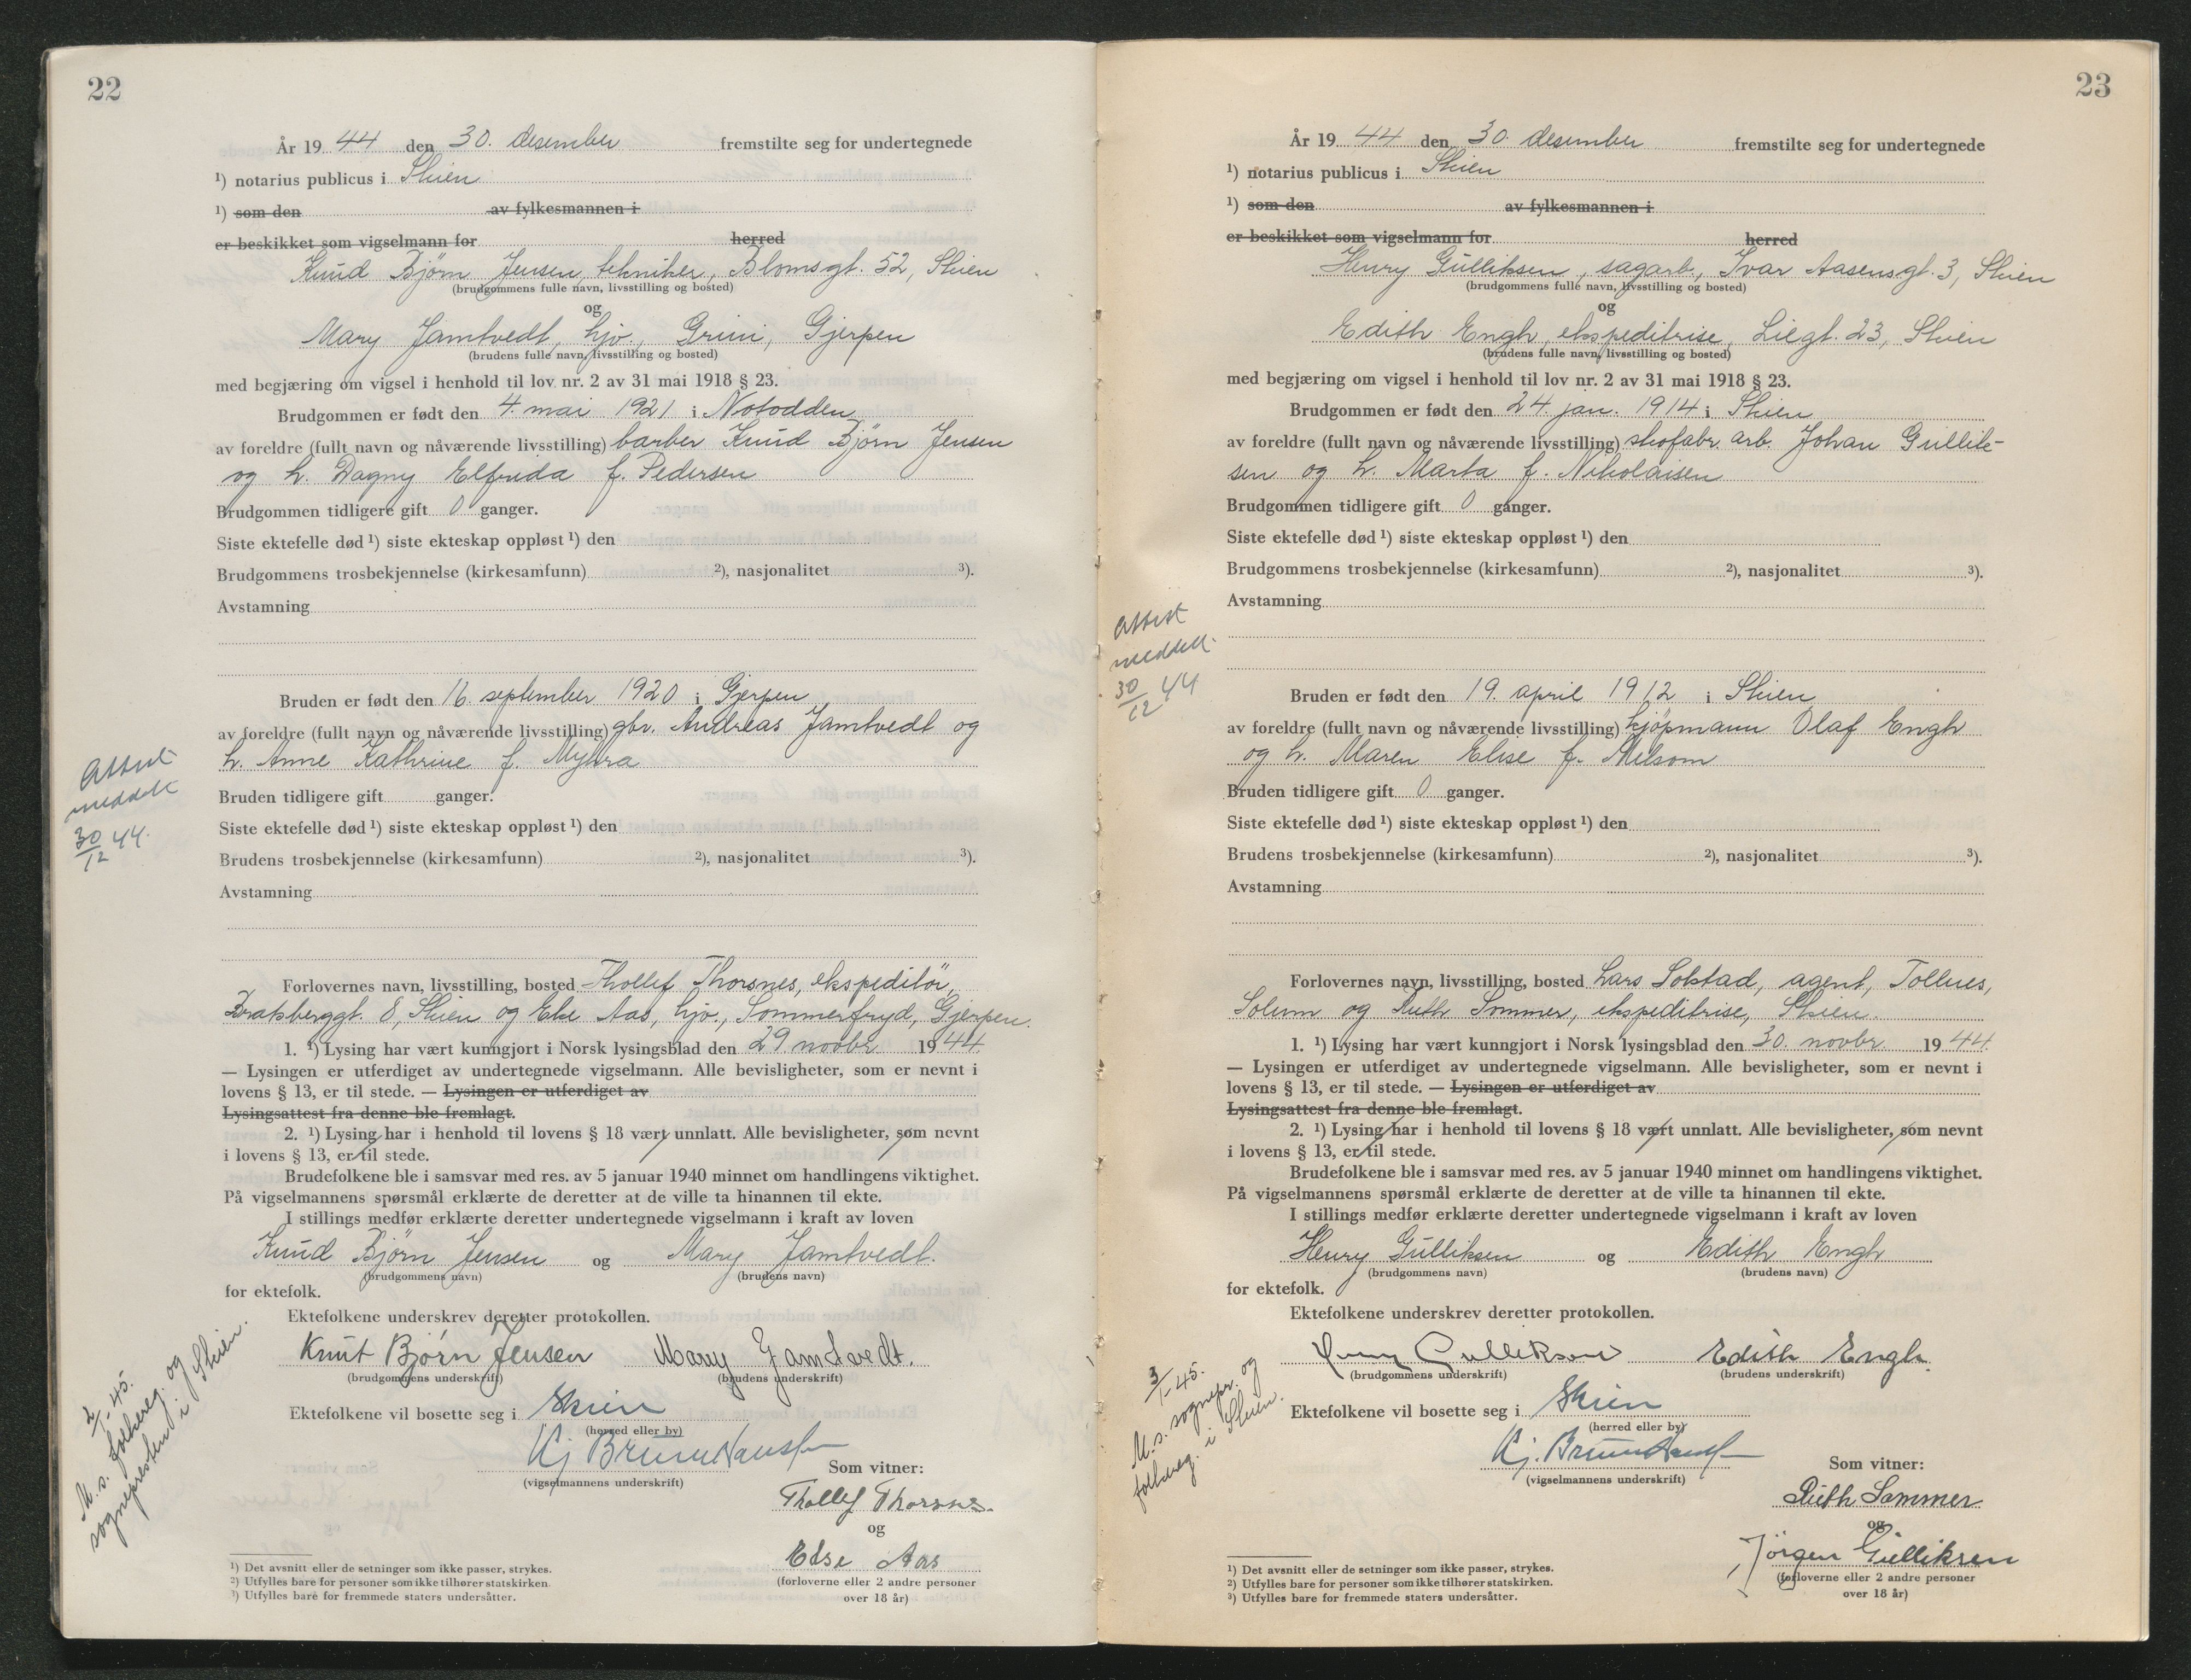 22
År 19 44 den 30. desember fremstilte seg for undertegnede
¹) notarius publicus i Skien
¹) som den av fylkesmannen i
er beskikket som vigselmann for herred
Knud Bjørn Jensen, tekniker, Blomsgt. 52, Skien
(brudgommens fulle navn, livsstilling og bosted)
og
Mary Jamtvedt, hjv., Grini, Gjerpen
(brudens fulle navn, livsstilling og bosted)
med begjæring om vigsel i henhold til lov nr. 2 av 31 mai 1918 § 23.
Brudgommen er født den 4. mai 1921 i Notodden
av foreldre (fullt navn og nåværende livsstilling) barber Knud Bjørn Jensen
og h. Dagny Elfrida f. Pedersen
Brudgommen tidligere gift 0 ganger.
Siste ektefelle død ¹) siste ekteskap oppløst ¹) den
Brudgommens trosbekjennelse (kirkesamfunn) ²), nasjonalitet ³).
Avstamning
Bruden er født den 16. september 1920 i Gjerpen
av foreldre (fullt navn og nåværende livsstilling) gbr. Andreas Jamtvedt og
h. Anne Kathrine f. Myhra
Bruden tidligere gift ganger.
Siste ektefelle død ¹) siste ekteskap oppløst ¹) den
Brudens trosbekjennelse (kirkesamfunn) ²), nasjonalitet ³).
Avstamning
Attest
meddelt
30/12 44.
Forlovernes navn, livsstilling, bosted Thollef Thorsnes, ekspeditør,
Bratsberggt. 8, Skien og Else Aas, hjv., Sommerfryd, Gjerpen.
1. ¹) Lysing har vært kunngjort i Norsk lysingsblad den 29 novbr. 19 44.
— Lysingen er utferdiget av undertegnede vigselmann. Alle bevisligheter, som er nevnt i
lovens § 13, er til stede. — Lysingen er utferdiget av
Lysingsattest fra denne ble fremlagt.
2. ¹) Lysing har i henhold til lovens § 18 vært unnlatt. Alle bevisligheter, som nevnt
i lovens § 13, er til stede.
Brudefolkene ble i samsvar med res. av 5 januar 1940 minnet om handlingens viktighet.
På vigselmannens spørsmål erklærte de deretter at de ville ta hinannen til ekte.
I stillings medfør erklærte deretter undertegnede vigselmann i kraft av loven
Knud Bjørn Jensen og Mary Jamtvedt.
(brudgommens navn) (brudens navn)
for ektefolk.
Ektefolkene underskrev deretter protokollen.
Knut Bjørn Jensen Mary Jamtvedt.
(brudgommens underskrift) (brudens underskrift)
Ektefolkene vil bosette seg i Skien
(herred eller by)
Kj Bruun Hansen
(vigselmannens underskrift)
Som vitner:
Thollef Thorsnes.
og
Else Aas
(forloverne eller 2 andre personer
over 18 år)
2/1-45.
M.s. folkereg. og
sognepresten i Skien.
¹) Det avsnitt eller de setninger som ikke passer, strykes.
²) Utfylles bare for personer som ikke tilhører statskirken.
³) Utfylles bare for fremmede staters undersåtter.
23
År 19 44 den 30. desember fremstilte seg for undertegnede
¹) notarius publicus i Skien
¹) som den av fylkesmannen i
er beskikket som vigselmann for herred
Henry Gulliksen, sagarb., Ivar Aasensgt. 3, Skien
(brudgommens fulle navn, livsstilling og bosted)
og
Edith Engh, ekspeditrise, Liegt. 23, Skien
(brudens fulle navn, livsstilling og bosted)
med begjæring om vigsel i henhold til lov nr. 2 av 31 mai 1918 § 23.
Brudgommen er født den 24. jan. 1914 i Skien
av foreldre (fullt navn og nåværende livsstilling) skofabr. arb. Johan Gullik-
sen og h. Marta f. Nikolaisen
Brudgommen tidligere gift 0 ganger.
Siste ektefelle død ¹) siste ekteskap oppløst ¹) den
Brudgommens trosbekjennelse (kirkesamfunn) ²), nasjonalitet ³).
Avstamning
Attest
meddelt.
30/12 44
Bruden er født den 19. april 1912 i Skien
av foreldre (fullt navn og nåværende livsstilling) kjøpmann Olaf Engh
og h. Maren Elise f. Melsom
Bruden tidligere gift 0 ganger.
Siste ektefelle død ¹) siste ekteskap oppløst ¹) den
Brudens trosbekjennelse (kirkesamfunn) ²), nasjonalitet ³).
Avstamning
Forlovernes navn, livsstilling, bosted Lars Solstad, agent, Tollnes,
Solum og Ruth Sommer, ekspeditrise, Skien.
1. ¹) Lysing har vært kunngjort i Norsk lysingsblad den 30. novbr. 19 44.
— Lysingen er utferdiget av undertegnede vigselmann. Alle bevisligheter, som er nevnt i
lovens § 13, er til stede. — Lysingen er utferdiget av
Lysingsattest fra denne ble fremlagt.
2. ¹) Lysing har i henhold til lovens § 18 vært unnlatt. Alle bevisligheter, som nevnt
i lovens § 13, er til stede.
Brudefolkene ble i samsvar med res. av 5 januar 1940 minnet om handlingens viktighet.
På vigselmannens spørsmål erklærte de deretter at de ville ta hinannen til ekte.
I stillings medfør erklærte deretter undertegnede vigselmann i kraft av loven
Henry Gulliksen og Edith Engh
(brudgommens navn) (brudens navn)
for ektefolk.
Ektefolkene underskrev deretter protokollen.
Henry Gulliksen Edith Engh.
(brudgommens underskrift) (brudens underskrift)
Ektefolkene vil bosette seg i Skien
(herred eller by)
Kj. Bruun Hansen
(vigselmannens underskrift)
Som vitner:
Ruth Sommer
og
Jörgen Gulliksen
(forloverne eller 2 andre personer
over 18 år)
3/1-45.
M.s. sognepr. og
folkereg. i Skien.
¹) Det avsnitt eller de setninger som ikke passer, strykes.
²) Utfylles bare for personer som ikke tilhører statskirken.
³) Utfylles bare for fremmede staters undersåtter.